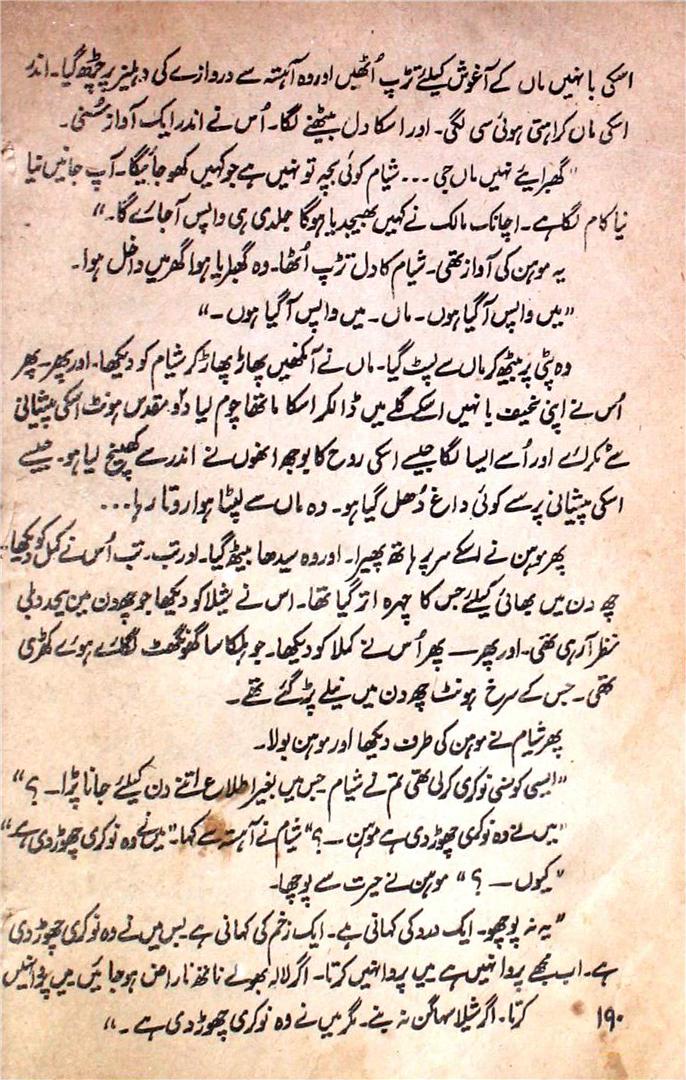 اسکی بانہیں ماں کے آغوش کیلئے تڑپ اُٹھیں اور وہ آہستہ سے دروازے کی دہلیز پر چڑھ گیا۔ اندر
اسکی ماں کراہتی ہوئی سی لگی۔ اور اسکا دل بیٹھنے لگا۔ اُس نے اندر ایک آواز سُنی۔
"گھبرایئے نہیں ماں جی ... شیام کوئی بچہ تو نہیں ہے جو کہیں کھو جائیگا۔ آپ جانیں نیا
نیا کام لگا ہے۔ اچانک مالک نے کہیں بھیجدیا ہوگا جلدی ہی واپس آجائے گا۔"
یہ موہن کی آواز تھی۔ شیام کا دل تڑپ اُٹھا۔ وہ گھبرایا ہوا گھر میں داخل ہوا۔
"میں واپس آگیا ہوں۔ ماں۔ میں واپس آگیا ہوں۔"
وہ پٹی پر بیٹھ کر ماں سے لپٹ گیا۔ ماں نے آنکھیں پھاڑ پھاڑ کر شیام کو دیکھا۔ اور پھر۔ پھر
اُس نے اپنی نحیف بانہیں اسکے گلے میں ڈالکر اسکا ماتھا چوم لیا دو مقدس ہونٹ اسکی پیشانی
سے ٹکرائے اور اُسے ایسا لگا جیسے اسکی روح کا بوجھ انھوں نے اندر سے کھینچ لیا ہو۔ جیسے
اسکی پیشانی پر سے کوئی داغ دُھل گیا ہو۔ وہ ماں سے لپٹا ہوا روتا رہا...
پھر موہن نے اسکے سر پر ہاتھ پھیرا۔ اور وہ سیدھا بیٹھ گیا۔ اور تب۔ تب اُس نے کمل کو دیکھا۔
چھ دن میں بھائی کیلئے جس کا چہرہ اتر گیا تھا۔ اس نے شیلا کو دیکھا جو چھ دن میں بیحد دبلی
نظر آرہی تھی۔ اور پھر — پھر اُس نے کملا کو دیکھا۔ جو ہلکا سا گھونگھٹ لگائے ہوئے کھڑی
تھی۔ جس کے سرخ ہونٹ چھ دن میں نیلے پڑ گئے تھے۔
پھر شیام نے موہن کی طرف دیکھا اور موہن بولا۔
"ایسی کونسی نوکری کرلی تھی تم نے شیام جس میں بغیر اطلاع اتنے دن کیلئے جانا پڑا — ؟"
"میں نے وہ نوکری چھوڑ دی ہے موہن — ؟" شیام نے آہستہ سے کہا۔ "میں نے وہ نوکری چھوڑ دی ہے"
"کیوں — ؟" موہن نے حیرت سے پوچھا۔
"یہ نہ پوچھو۔ ایک درد کی کہانی ہے۔ ایک زخم کی کہانی ہے بس میں نے وہ نوکری چھوڑ دی
ہے۔ اب مجھے پروا نہیں ہے میں پروا نہیں کرتا۔ اگر لالہ بھولے ناتھ ناراض ہو جائیں میں پروا نہیں
کرتا۔ اگر شیلا سہاگن نہ بنے۔ مگر میں نے وہ نوکری چھوڑ دی ہے۔"
۱۹۰